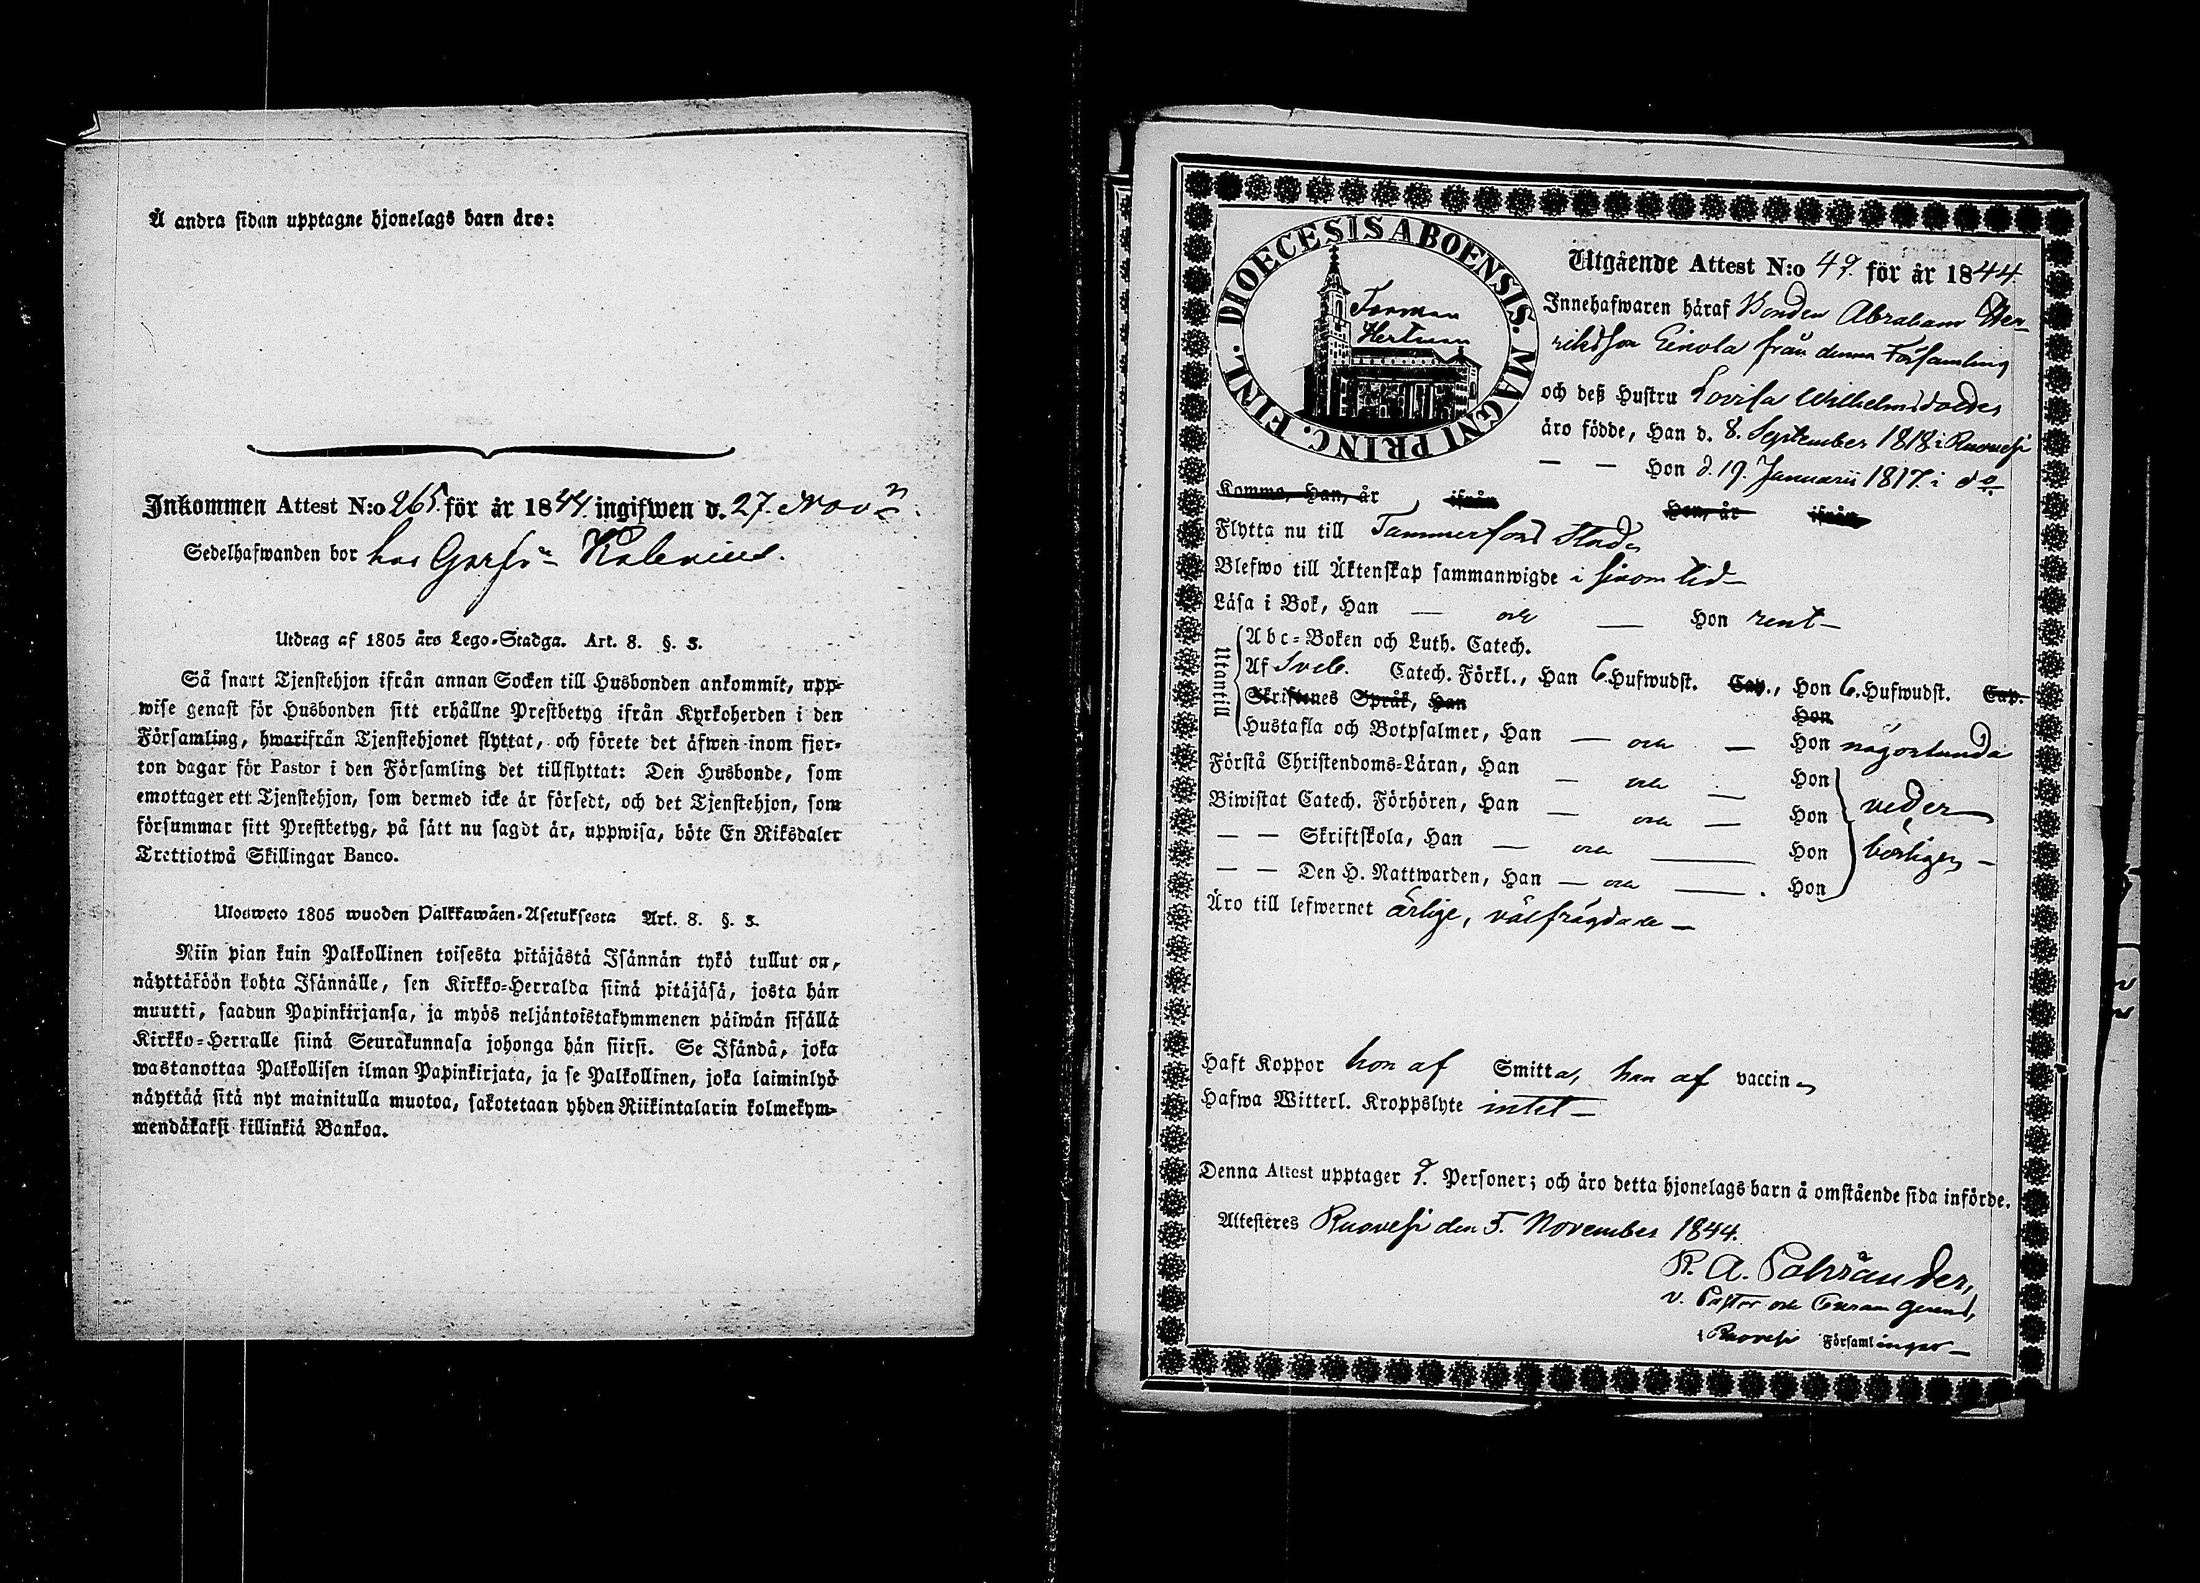 Å andra sidan upptagne hjonelags barn äro:
Inkommen Attest N:o 265. för år 1844. ingifwen d. 27. Nov
Sedelhafwanden bor hos
Utdrag af 1805 års Lego-Stadga. Art. 8. §. 3.
Så snart Tjenstehjon ifrån annan Socken till Husbonden ankommit, upp-
wise genast för Husbonden sitt erhållne Prestbetyg ifrån Kyrkoherden i den
Församling, hwarifrån Tjenstehjonet flyttat, och förete det äfwen inom fjor-
ton dagar för Pastor i den Församling det tillflyttat: Den Husbonde, som
emottager ett Tjenstehjon, som dermed icke är försedt, och det Tjenstehjon, som
försummar sitt Prestbetyg, på sätt nu sagdt är, uppwisa, böte En Riksdaler
Trettiotwå Skillingar Banco.
Ulosweto 1805 wuoden Palkkawäen-Asetuksesta Art. 8. §. 3.
Niin pian kuin Palkollinen toisesta pitäjästä Isännän tykö tullut on,
näyttäköön kohta Isännälle, sen Kirkko-Herralda siinä pitäjäsä, josta hän
muutti, saadun Papinkirjansa, ja myös neljäntoistakymmenen päiwän sisällä
Kirkko-Herralle siinä Seurakunnasa johonga hän siirsi. Se Isändä, joka
wastanottaa Palkollisen ilman Papinkirjata, ja se Palkollinen, joka laiminlyö
näyttää sitä nyt mainitulla muotoa, sakotetaan yhden Riikintalarin kolmekym-
mendäkaksi killinkiä Bankoa.
DIOECESIS ABOENSIS. MAGNI PRINC. FINL.
Utgående Attest N:o 49. för år 1844.
Innehafwaren häraf Bonden Abraham Hen-
riksson Einola från denna Församling
och deß Hustru Lovisa Wilhelmsdotter
äro födde, Han d. 8. September 1818 i Ruovesi
— — Hon d. 19. Januarii 1817. i do
Komma, Han, år ifrån Hon, år ifrån
Flytta nu till Tammerfors Stad
Blefwo till Äktenskap sammanwigde i sinom tid
Läsa i Bok, Han — och — Hon rent
Utantill
Abc-Boken och Luth. Catech.
Af Sveb. Catech. Förkl., Han 6. Hufwudst. Cap., Hon 6. Hufwudst. Cap.
Skriftenes Språk, Han Hon
Hustafla och Botpsalmer, Han — och — Hon någorlunda
Förstå Christendoms-Läran, Han — och — Hon
Biwistat Catech. Förhören, Han — och — Hon veder
— — Skriftskola, Han — och — Hon börligen
— — Den H. Nattwarden, Han — och — Hon
Äro till lefwernet ärlige, välfrägdade
Haft Koppor hon af Smitta, han af vaccin
Hafwa Witterl. Kroppslyte intet
Denna Attest upptager 2. Personer; och äro detta hjonelags barn å omstående sida införde.
Attesteres Ruovesi den 5. November 1844.
v. Pastor och
i Ruovesi Församlingar